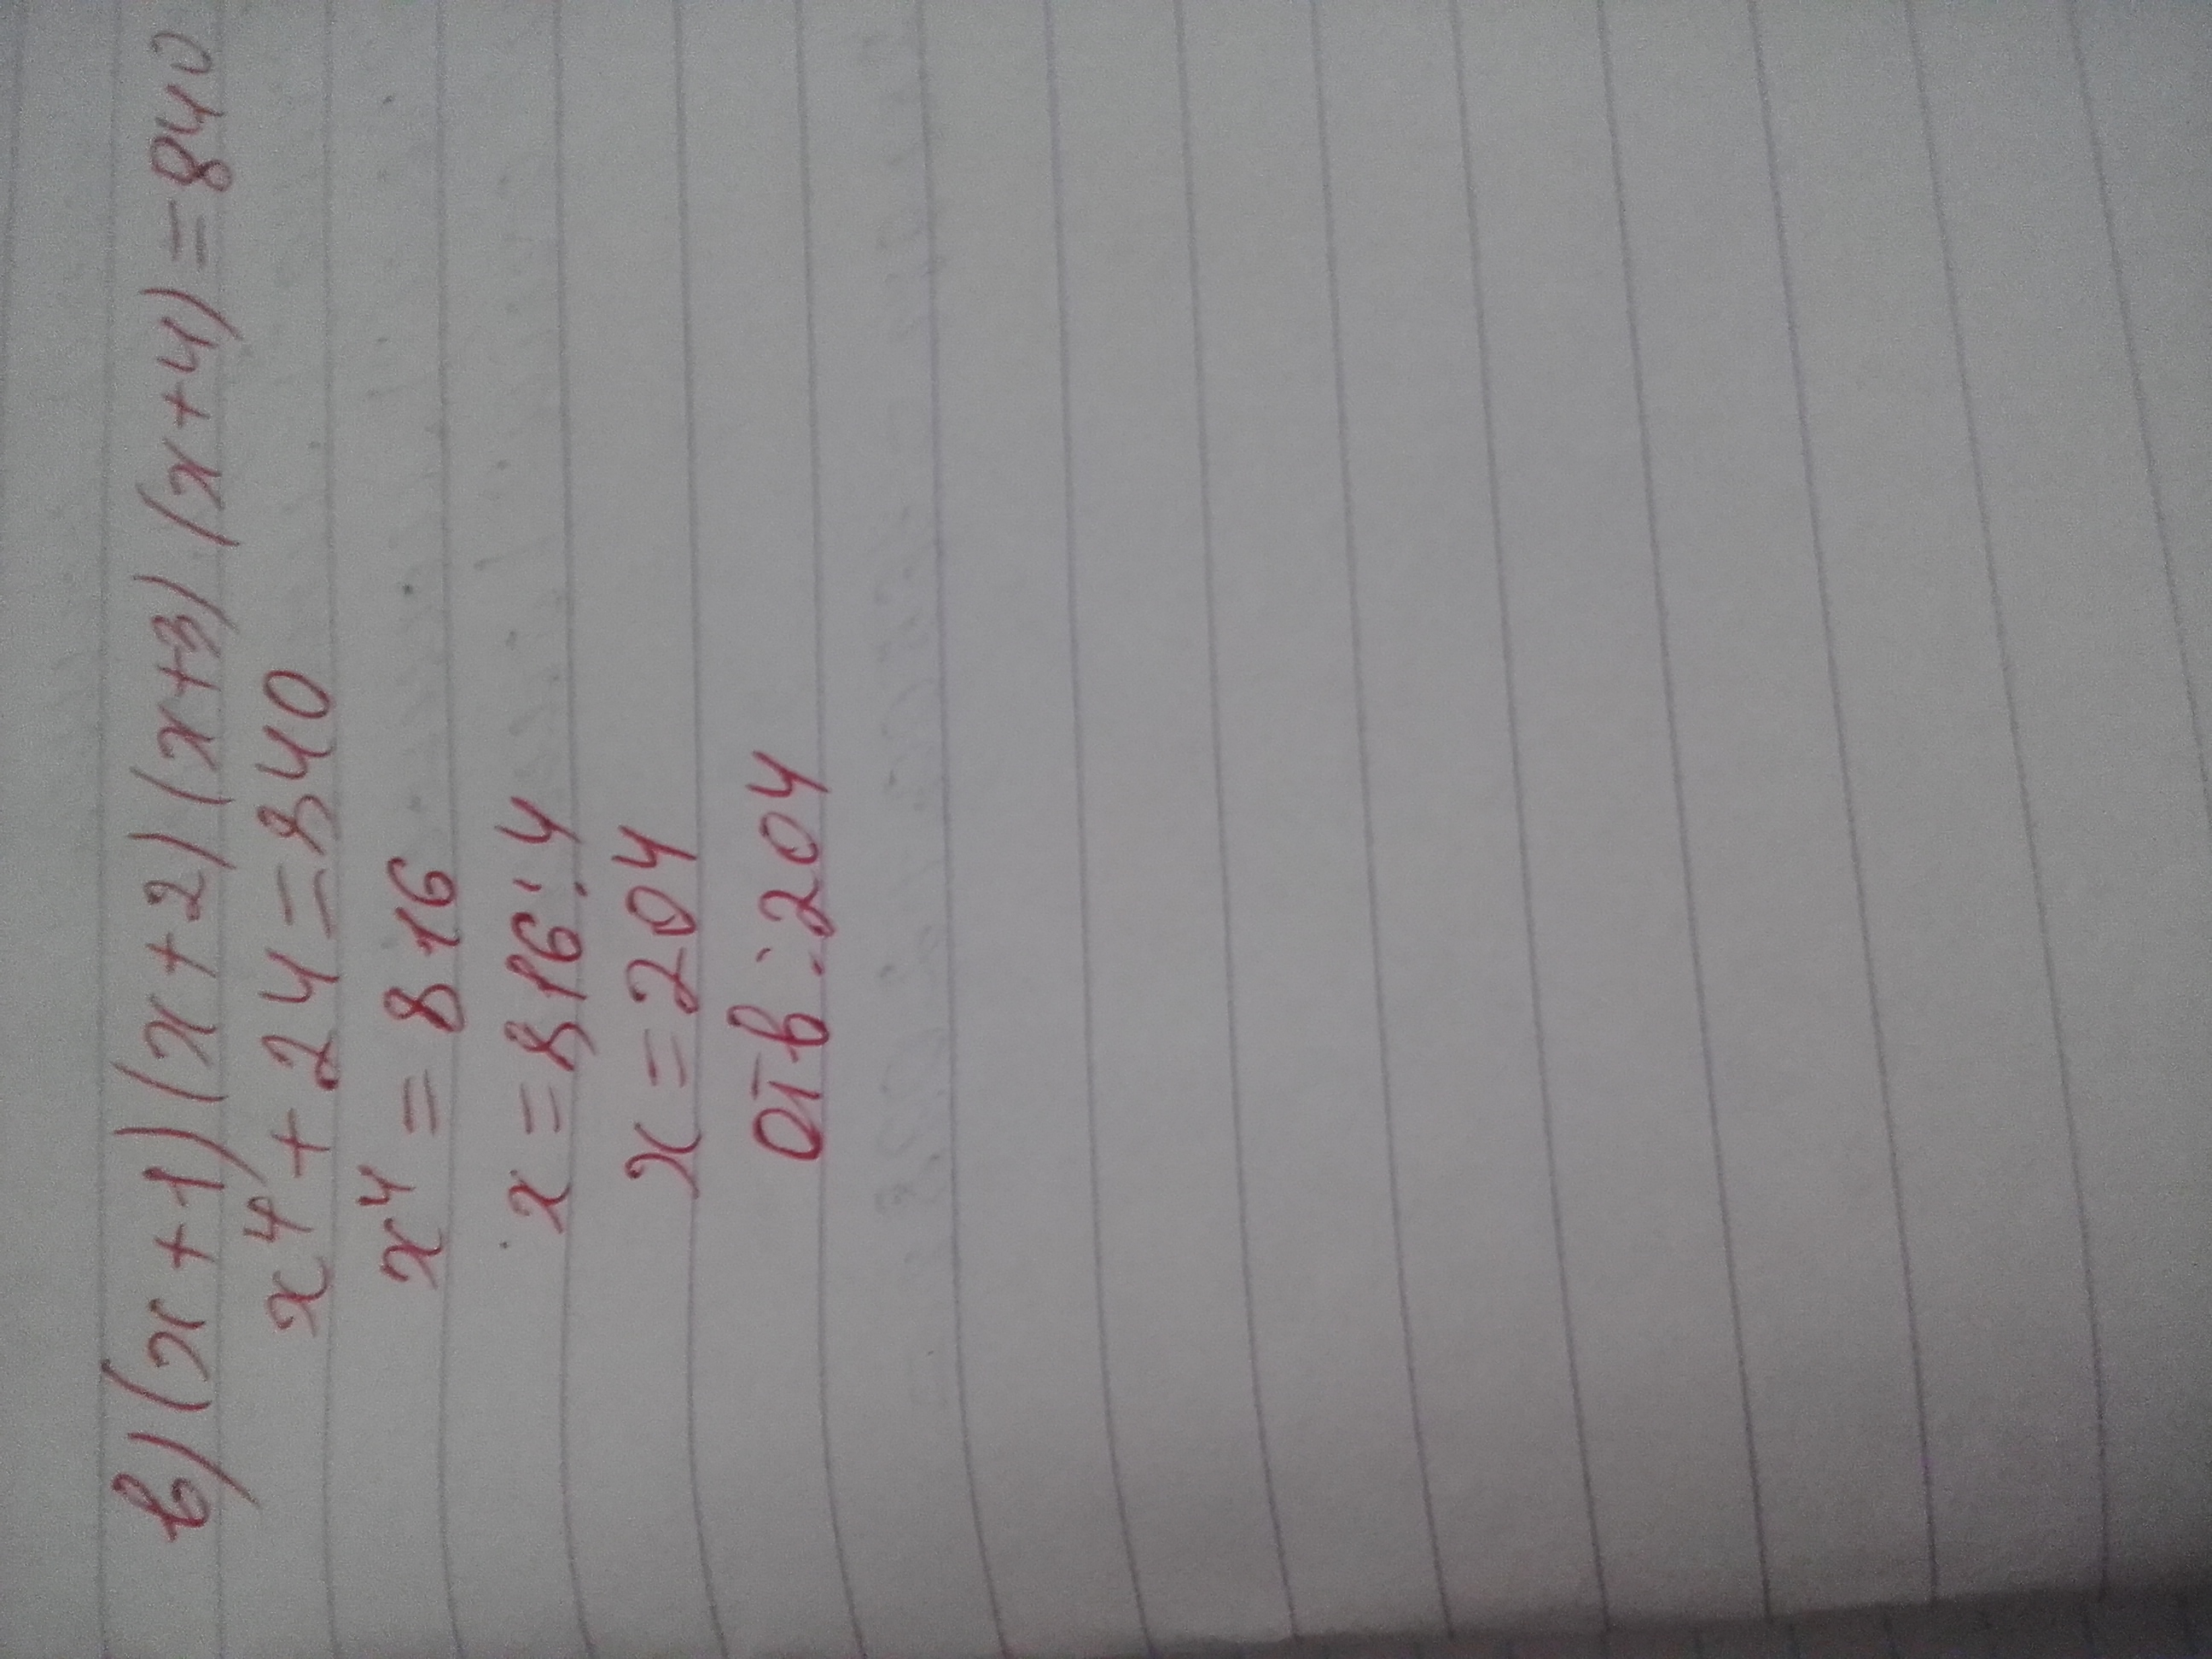 в) (x+1)(x+2)(x+3)(x+4)=840
x⁴+24=840
x⁴=816
x=816:4
x=204
Отв:204